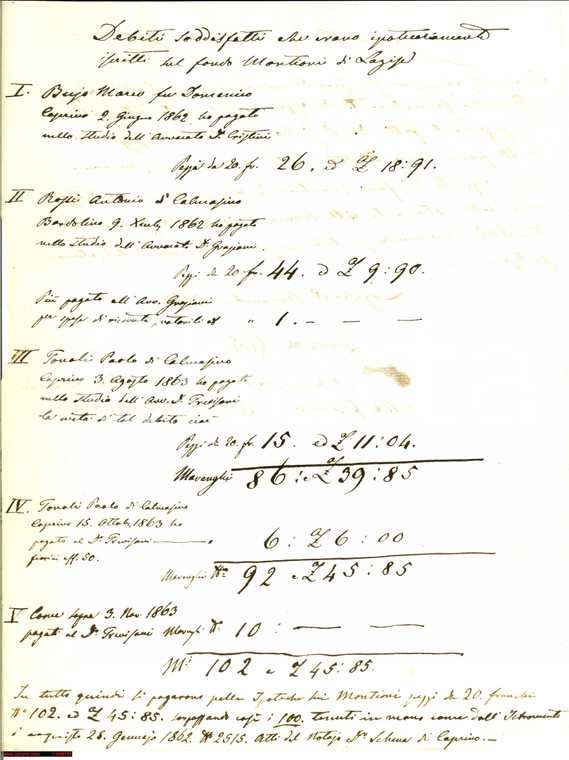 Debiti soddisfatti che erano ipotecariamente
iscritti sul fondo Montioni di Lazise
I. Marco fu Domenico
Caprino 2. Giugno 1862 ho pagato
nello studio dell'Avvocato Dr Cristini
Pezzi da 20. fr. 26. ed £ 18:91.
II Rossi Antonio di Calmasino
Bardolino 9. 1862 ho pagato
nello studio dell'Avvocato Dr Graziani.
Pezzi da 20 fr. 44. e £ 9:90.
Più pagato all'Avv. Graziani
per spese di " 1.— — —
III Tonoli Paolo di Calmasino
Caprino 3. Agosto 1863 ho pagato
nello studio dell'Avv. Dr Trevisani
la metà di tal debito cioè
Pezzi da 20. fr. 15. ed £ 11:04.
Marenghi 86: e £ 39:85
IV. Tonoli Paolo di Calmasino
Caprino 15. Ottob. 1863 ho
pagato al Dr Trevisani — 6: £ 6:00
fiorini eff. 50.
Marenghi No 92 e £ 45:85
V Come sopra 3. Nov. 1863
pagati al Dr Trevisani Marenghi No 10: — —
M: 102 e £ 45:85.
In tutto quindi si pagarono pelle Ipoteche Montioni pezzi da 20. franchi
No 102. ed £ 45:85. i 100. tenuti in mano come dall'Istromento
d'acquisto 26. Gennajo 1862. No 2515. Atti del Notajo Dr Schena di Caprino.—